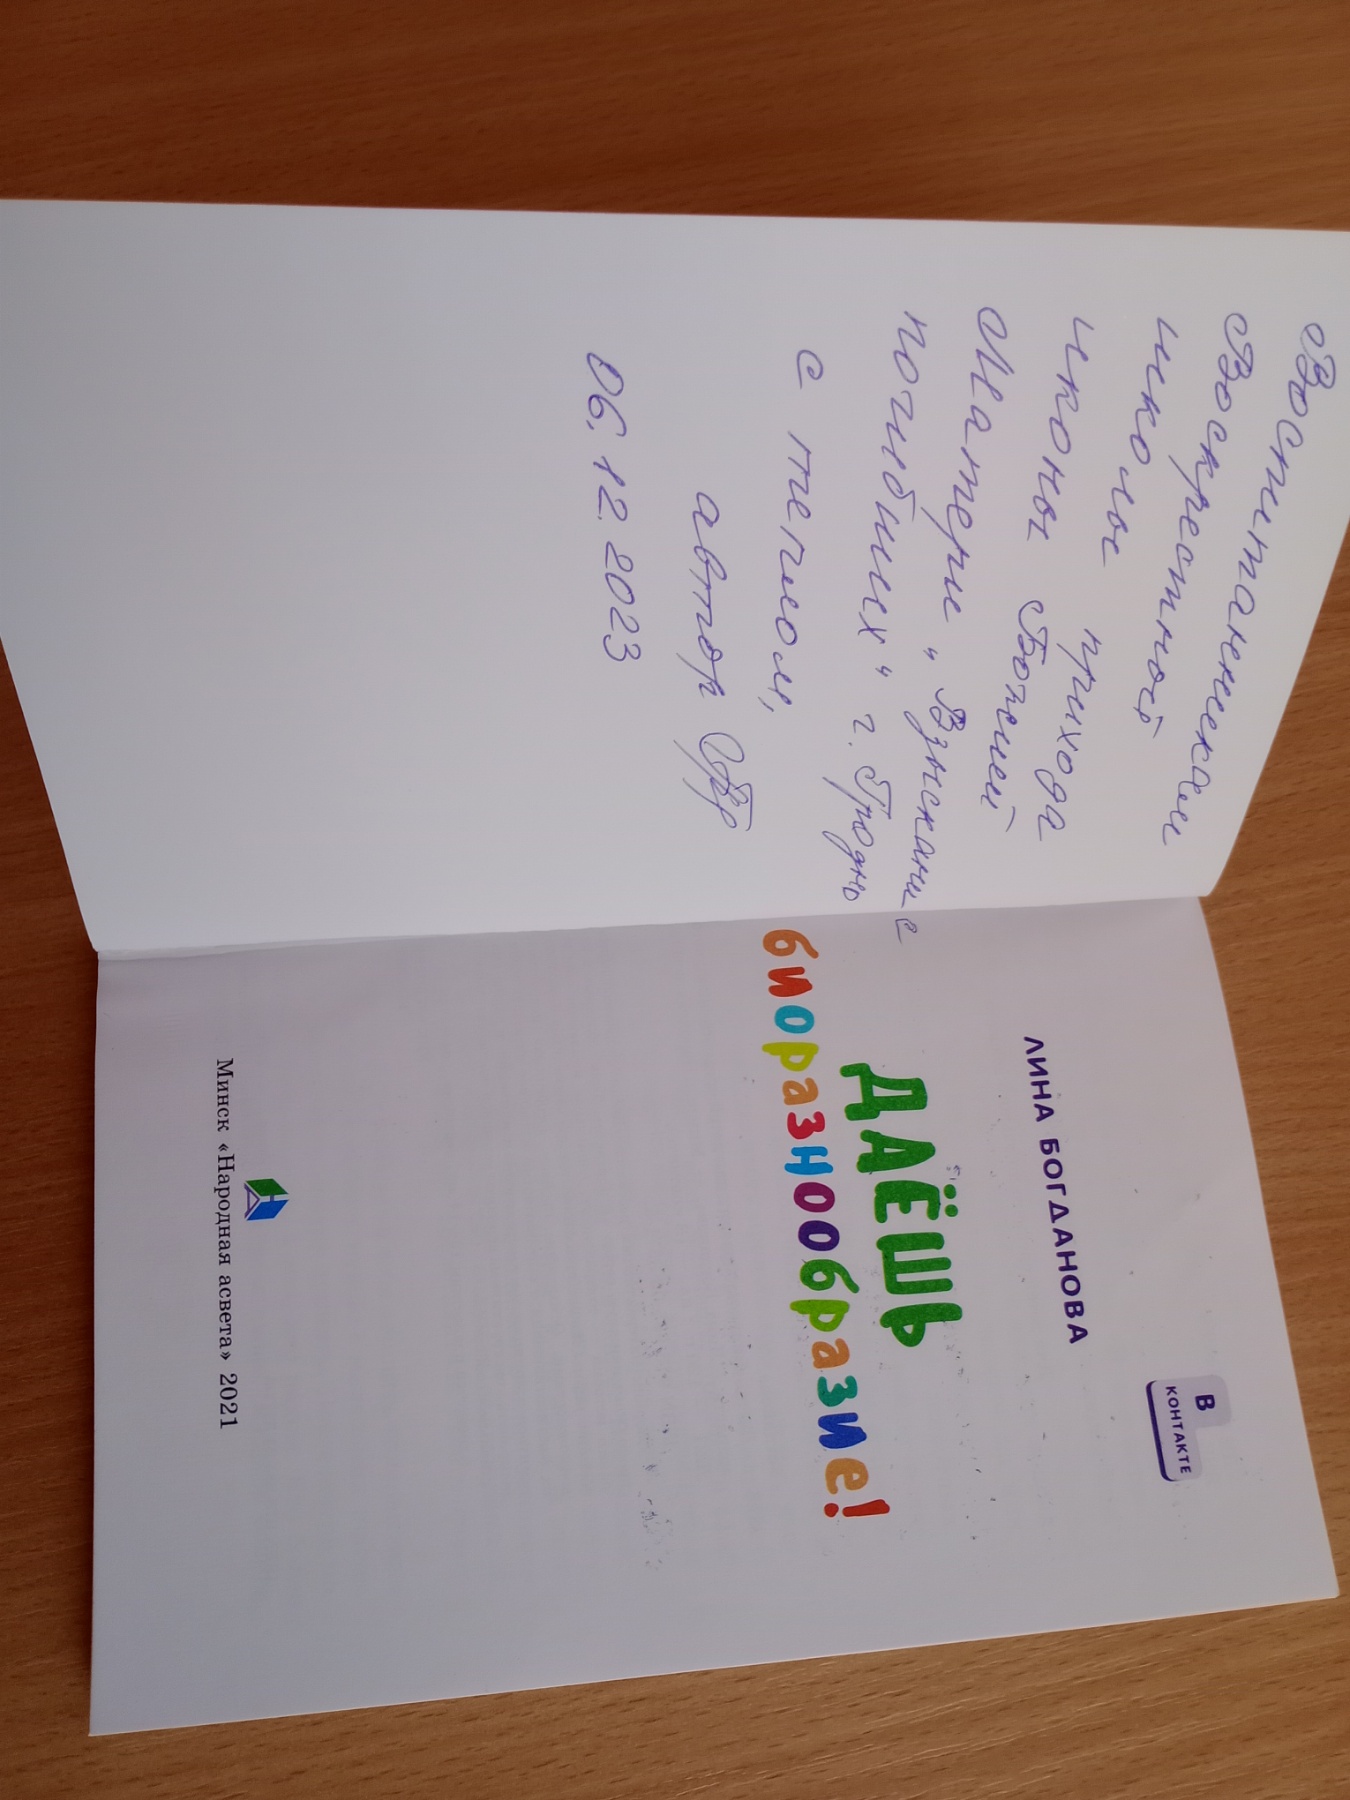 Воспитанникам
Воскресной
школы прихода
иконы Божией
Матери „Взыскание
погибших“ г. Гродно
с теплом,
автор
06.12.2023
В
КОНТАКТЕ
ЛИНА БОГДАНОВА
ДАЁШЬ
биоразнообразие!
Минск «Народная асвета» 2021